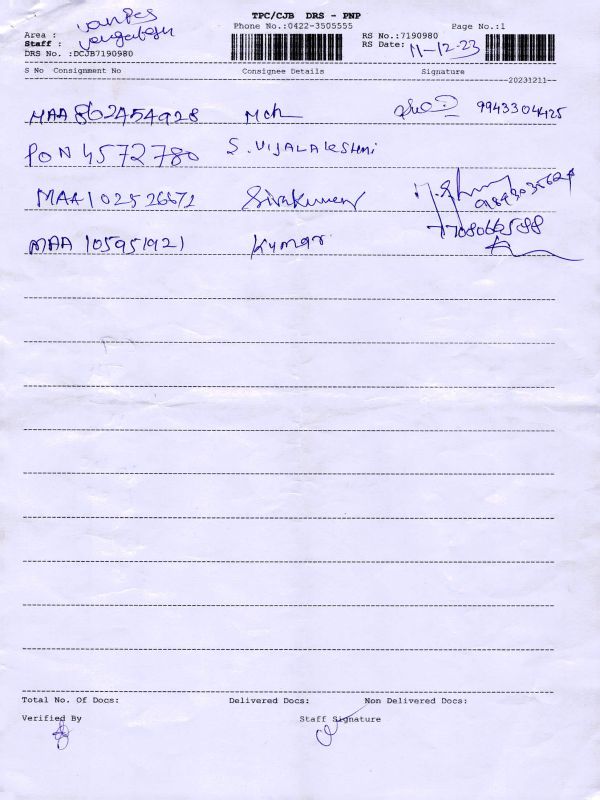 TPC/CJB DRS - PNP
Phone No.:0422-3505555 Page No.:1
Area :
Staff :
DRS No. :DCJB7190980
RS No.:7190980
RS Date: 11-12-23
S No Consignment No Consignee Details Signature
20231211
MAA 862454928 Mch 9943304425
PON 4572780 S. VIJALAKSHMI
MAA102526671 Sivakumar
MAA 105951921 Kumar 7708066588
Total No. Of Docs: Delivered Docs: Non Delivered Docs:
Verified By Staff Signature